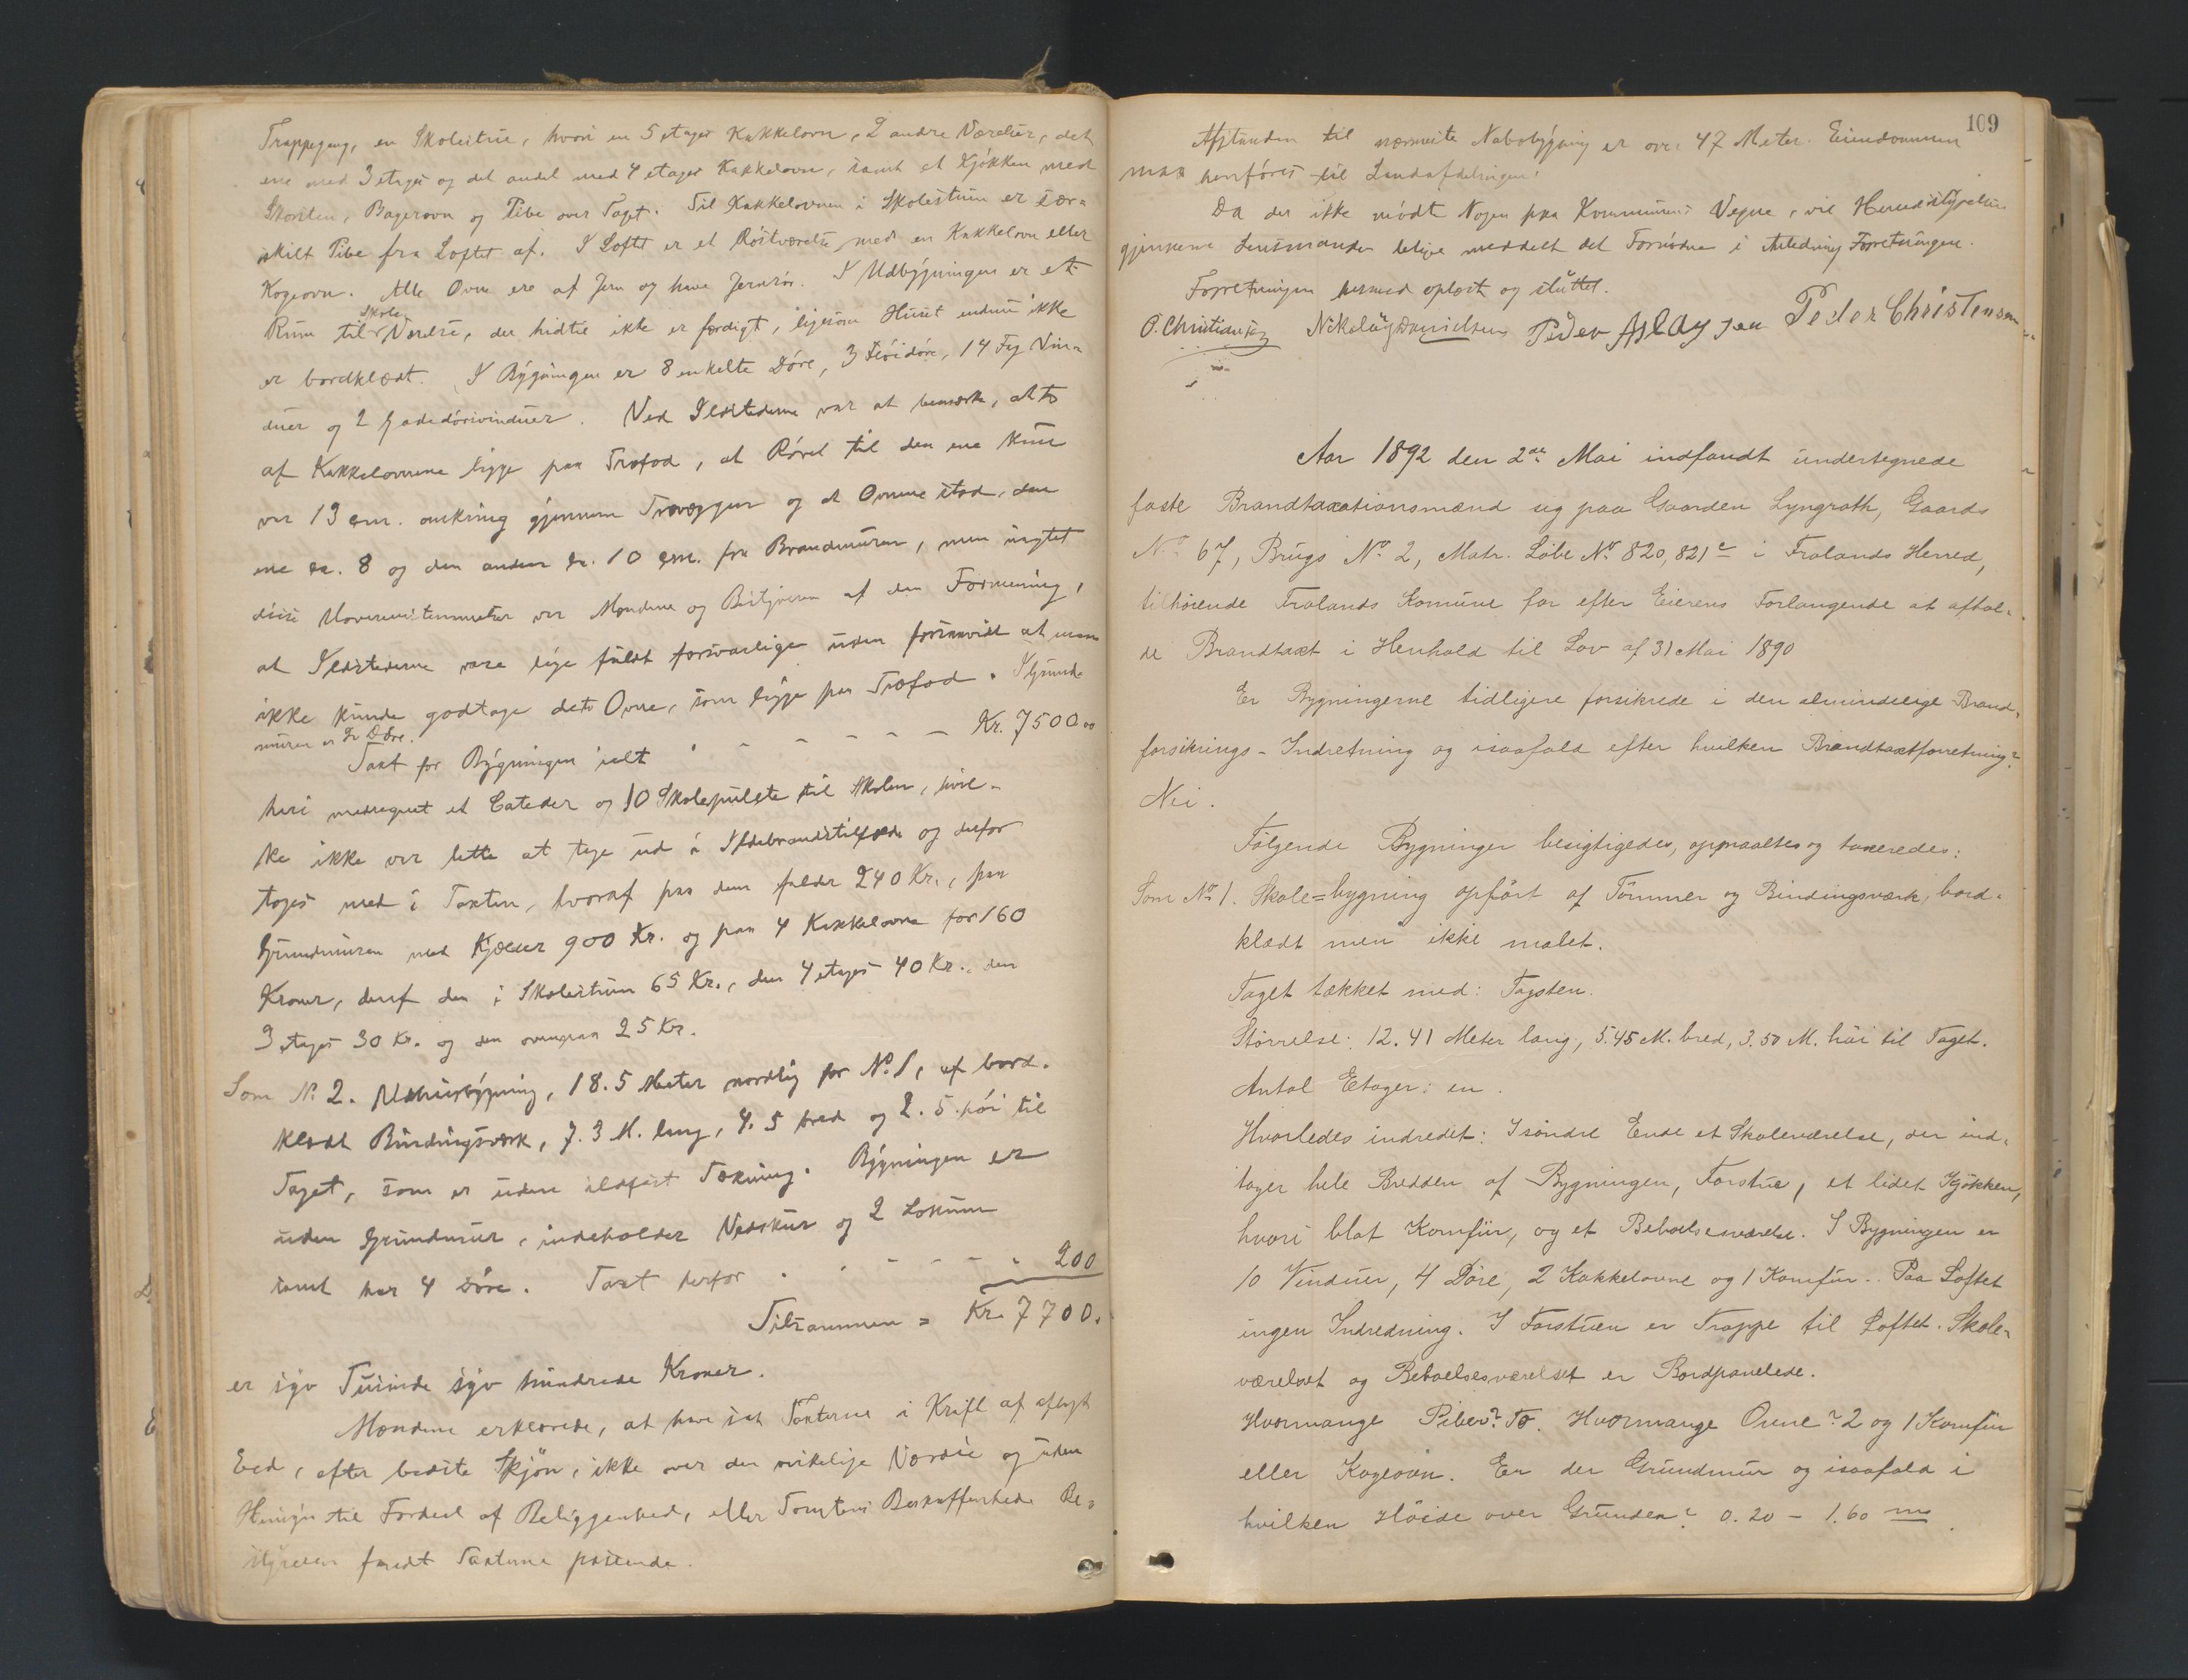 Trappegang, en Skolestue, hvori en 5 etages Kakkelovn, 2 andre Værelser, det
ene med 3 etages og det andet med 4 etages Kakkelovn, samt et Kjøkken med
Skorsten, Bagerovn og Pibe over Taget. Til Kakkelovnen i Skolestuen er sær-
skilt Pibe fra Loftet af. I Loftet er et Kvistværelse med en Kakkelovn eller
Kogeovn. Alle Ovne ere af Jern og have Jernrør. I Udbygningen er et
Rum til Skole Værelse, der hidtil ikke er færdigt, ligesom Huset endnu ikke
er bordklædt. I Bygningen er 8 enkelte Døre, 3 Fløidøre, 14 Fag Vin-
duer og 2 Gadedørsvinduer. Ved Ildstederne var at bemærke, at to
af Kakkelovnene ligge paa Træfod, at Røret til den ene kun
var 13 cm. omkring gjennem Trævæggen og at Ovnene stod, den
ene ca. 8 og den anden ca. 10 cm. fra Brandmuren, men uagtet
disse Uoverensstemmelser var Mændene og Bestyreren af den Formening,
at Ildstederne vare lige fuldt forsvarlige uden forsaavidt at man
ikke kunde godtage de to Ovne, som ligge paa Træfod. I Grund-
muren er to Døre.
Taxt for Bygningen ialt - - - - - - Kr. 7500 00
heri medregnet et Cateder og 10 Skolepulte til Skolen, hvil-
ke ikke var lette at tage ud i Ildebrandstilfælde og derfor
toges med i Taxten, hvoraf paa dem falder 240 Kr., paa
Grundmuren med Kjælder 900 Kr. og paa 4 Kakkelovne for 160
Kroner, deraf den i Skolestuen 65 Kr., den 4 etages 40 Kr., den
3 etages 30 Kr. og den ovenpaa 25 Kr.
Som No 2. Udhusbygning, 18.5 Meter nordlig for No 1, af bord-
klædt Bindingsværk, 7.3 M. lang, 4.5 bred og 2.5 høi til
Taget, som er uden ildfast Tækning. Bygningen er
uden Grundmur, indeholder Vedskur og 2 Lokum
samt har 4 Døre. Taxt herfor - - - - - 200
Tilsammen = Kr. 7700.
er syv Tusinde syv hundrede Kroner.
Mændene erklærede, at have sat Taxterne i Kraft af aflagt
Eed, efter bedste Skjøn, ikke over den virkelige Værdie og uden
Hensyn til Fordeel af Beliggenhed, eller Tomtens Beskaffenhed. Be-
styreren fandt Taxterne passende.
109
Afstanden til nærmeste Nabobygning er over 47 Meter. Eiendommen
maa henføres til Landafdelingen.
Da der ikke mødte Nogen paa Kommunens Vegne, vil Herredsstyrelsen
gjennem Lensmanden blive meddelt det Fornødne i Anledning Forretningen.
Forretningen hermed oplæst og sluttet.
O. Christiansen Nikolay Danielsen Peder Aslaksen Peder Christensen
Aar 1892 den 2den Mai indfandt undertegnede
faste Brandtaxationsmænd sig paa Gaarden Lyngroth, Gaards
No 67, Brugs No 2, Matr. Løbe No 820, 821c i Frolands Herred,
tilhørende Frolands Komune for efter Eierens Forlangende at afhol-
de Brandtaxt i Henhold til Lov af 31 Mai 1890
Er Bygningerne tidligere forsikrede i den almindelige Brand-
forsikrings-Indretning og isaafald efter hvilken Brandtaxtforretning?
Nei.
Følgende Bygninger besigtigedes, opmaaltes og taxeredes:
Som No 1. Skole=bygning opført af Tømmer og Bindingsværk, bord-
klædt men ikke malet.
Taget tækket med: Tagsten.
Størrelse: 12.41 Meter lang, 5.45 M. bred, 3.50 M. høi til Taget.
Antal Etager: en.
Hvorledes indredet: I søndre Ende et Skoleværelse, der ind-
tager hele Bredden af Bygningen, Forstue, et lidet Kjøkken,
hvori blot Komfür, og et Beboelsesværelse. I Bygningen er
10 Vinduer, 4 Døre, 2 Kakkelovne og 1 Komfür. Paa Loftet
ingen Indredning. I Forstuen er Trappe til Loftet. Skole-
værelset og Beboelsesværelset er Bordpanelede.
Hvormange Piber? To. Hvormange Ovne? 2 og 1 Komfür
eller Kogeovn. Er der Grundmur og isaafald i
hvilken Høide over Grunden? 0.20 - 1.60 m